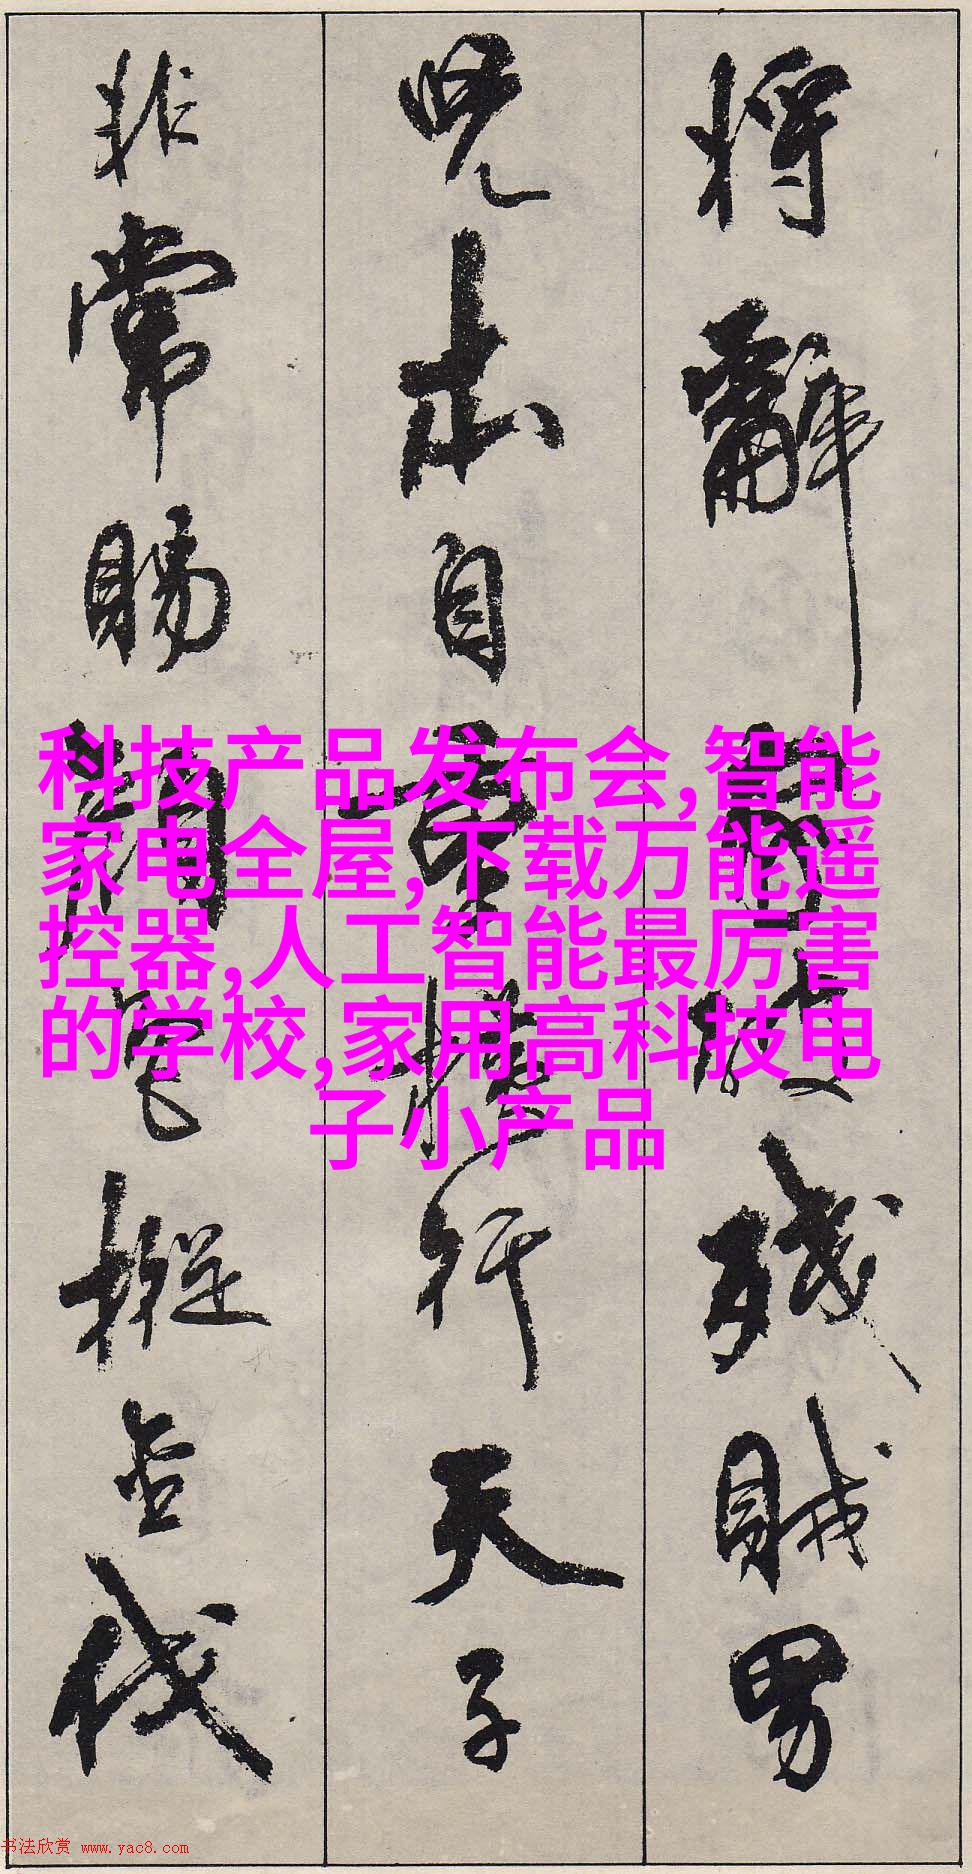 將辭家破殘賊男
兒本自重橫行天子
非常賜顏色摐金伐
科技产品发布会,智能
家电全屋,下载万能遥
控器,人工智能最厉害
的学校,家用高科技电
子小产品
书法欣赏 www.yac8.com